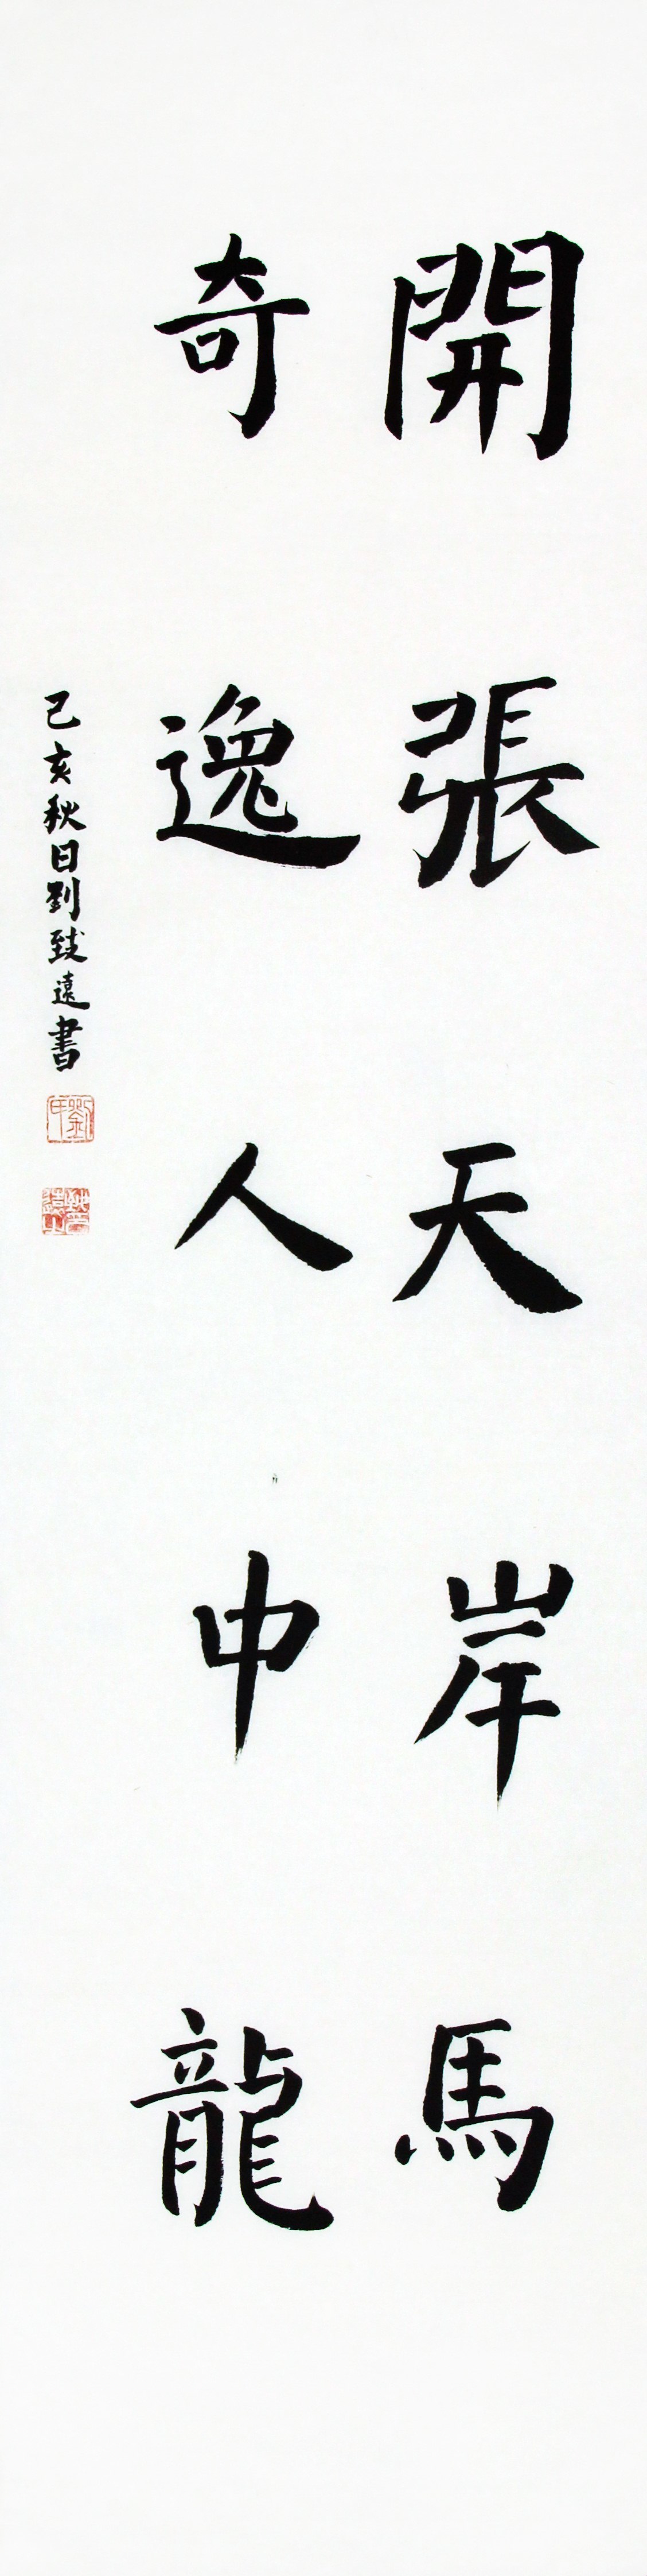 開張天岸馬
奇逸人中龍
己亥秋日劉致遠書
劉氏